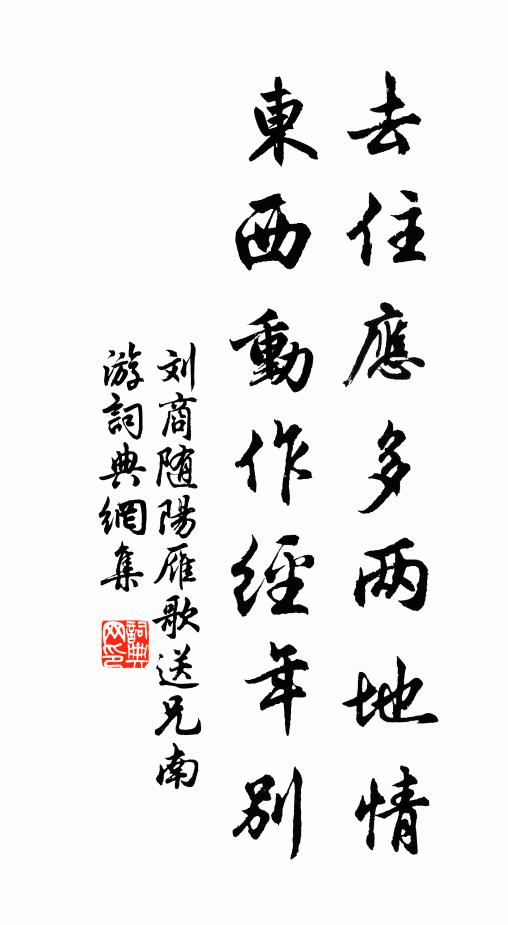 去住應多两地情
東西動作經年別
刘商随陽雁歌送兄南
游詞典網集
詞典
网印